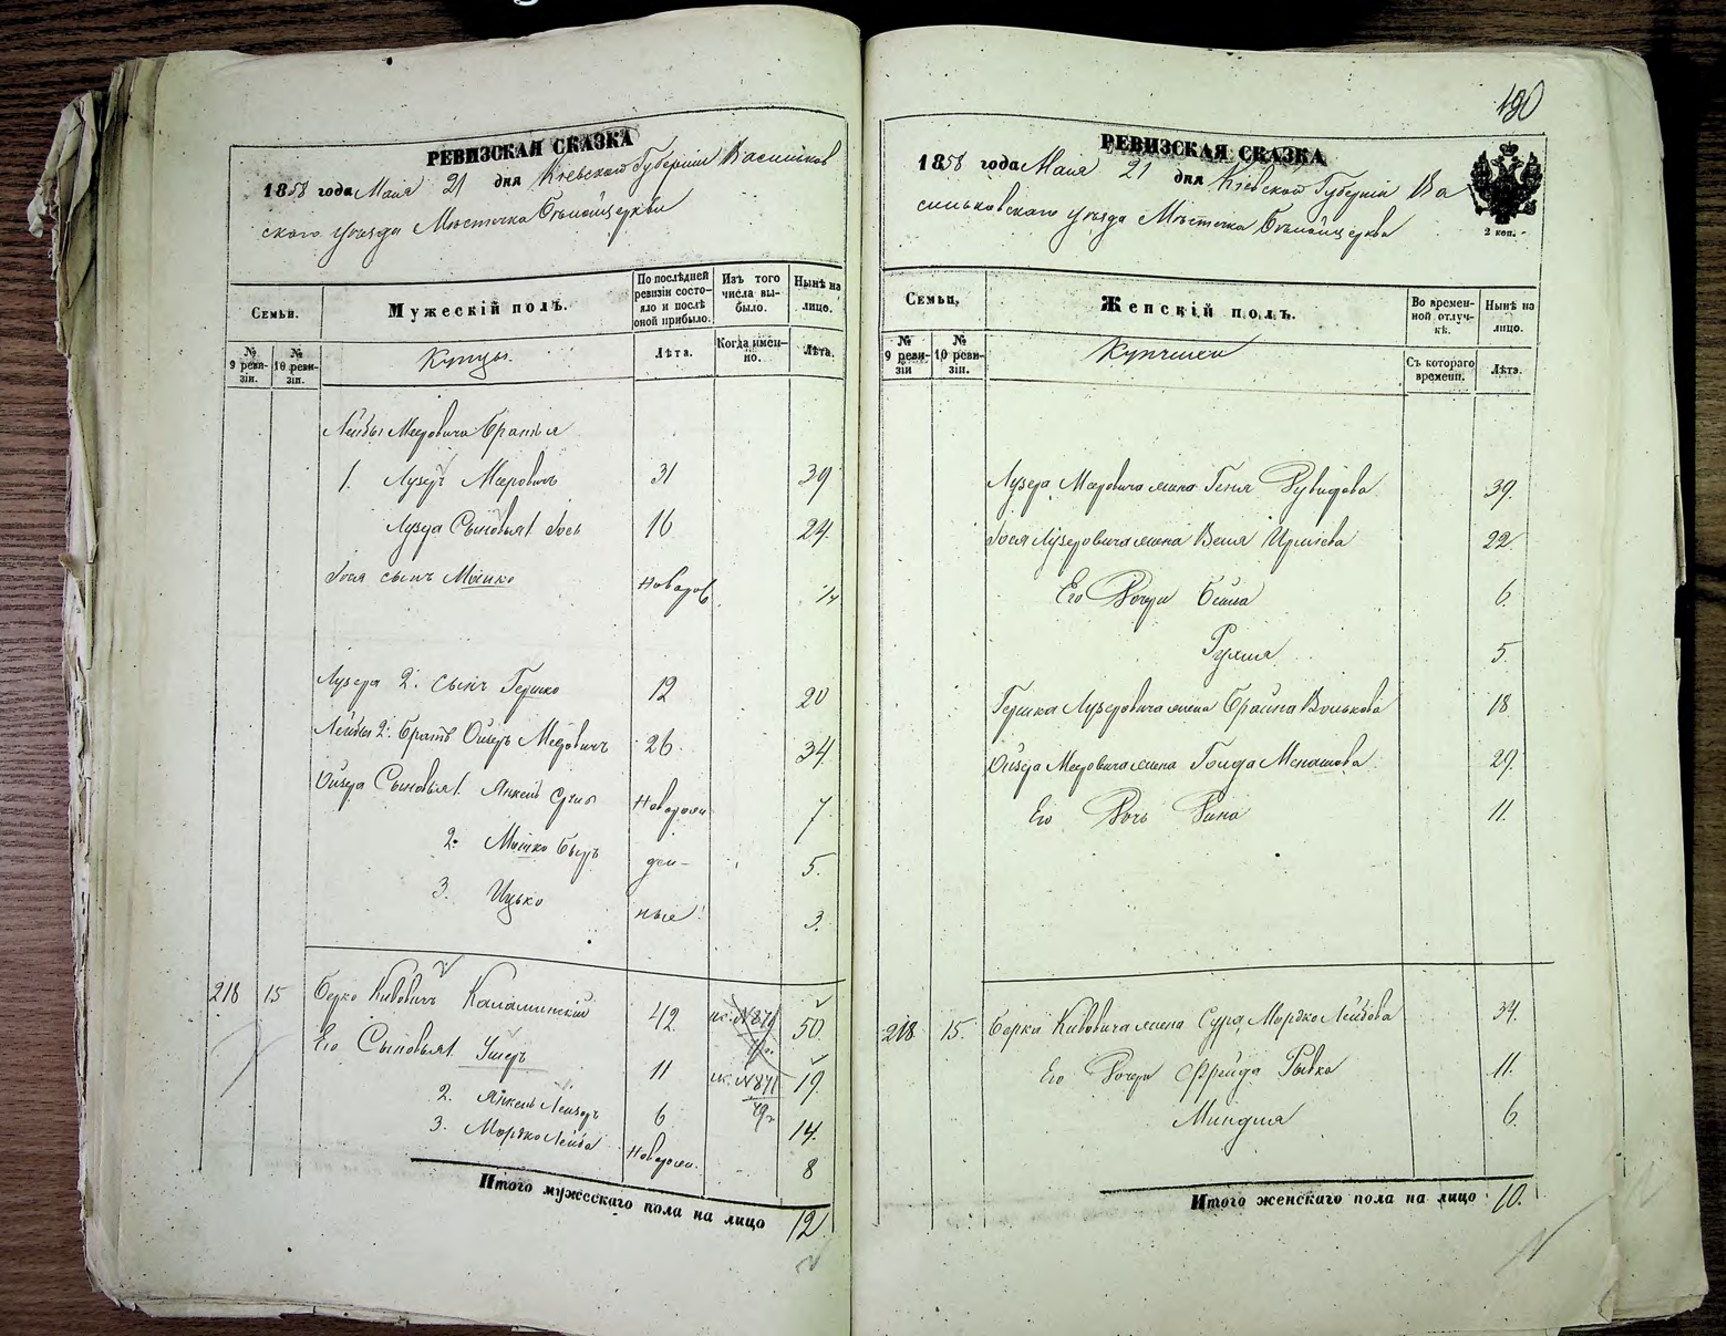 РЕВИЗСКАЯ СКАЗКА
1858 года Маия 21 дня Кіевской Губерніи Васильков
ского уѣзда Мѣстечка Бѣлойцеркви
Семьи.
Мужескій полъ.
По послѣдней ревизіи состояло и послѣ оной прибыло.
Изъ того числа выбыло.
Нынѣ на лицо.
№ 9 ревизіи.
№ 10 ревизіи.
Купцы.
Лѣта.
Когда именно.
Лѣта.
Лейбы Меировича Братья
1. Лузеръ Меировичъ 31 39
Лузера Сыновья 1. Іось 16 24.
Іося сынъ Мошко новорож 1/4
Лузера 2. сынъ Гершко 12 20
Лейбы 2. Братъ Ойзеръ Меровичъ 26. 34
Ойзера Сыновья 1. Янкель Сруль Новорож 7
2. Мошко Беръ ден- 5.
3. Ицько ные 3.
218 15 Берко Кивовичъ 42 ис. №871 50
Его Сыновья 1. Ушеръ 11 ис. №871 19
2. Янкель Лейзеръ 6 14.
3. Мордко Лейба Новорож. 8
Итого мужескаго пола на лицо 12
190
РЕВИЗСКАЯ СКАЗКА
1858 года Маия 21 дня Кіевской Губерніи Ва
сильковского уѣзда Мѣстечка Бѣлойцеркви
2 коп.
Семьи.
Женскій полъ.
Во временной отлучкѣ.
Нынѣ на лицо.
№ 9 ревизіи
№ 10 ревизіи.
Купчихи
Съ котораго времени.
Лѣта.
Лузера Меировича жена Геня Дувидова 39.
Іося Лузеровича жена Веля 22
Его Дочери Бейла 6.
Рухля 5.
Гершка Лузеровича жена Брайна Волькова 18
Ойзера Меровича жена Голда Менашова 29.
Его Дочь Дина 11.
218 15. Берка Кивовича жена Сура Мордко Лейбова 34.
Его Дочери Фрейда Рывка 11.
Миндля 6.
Итого женскаго пола на лицо 10.